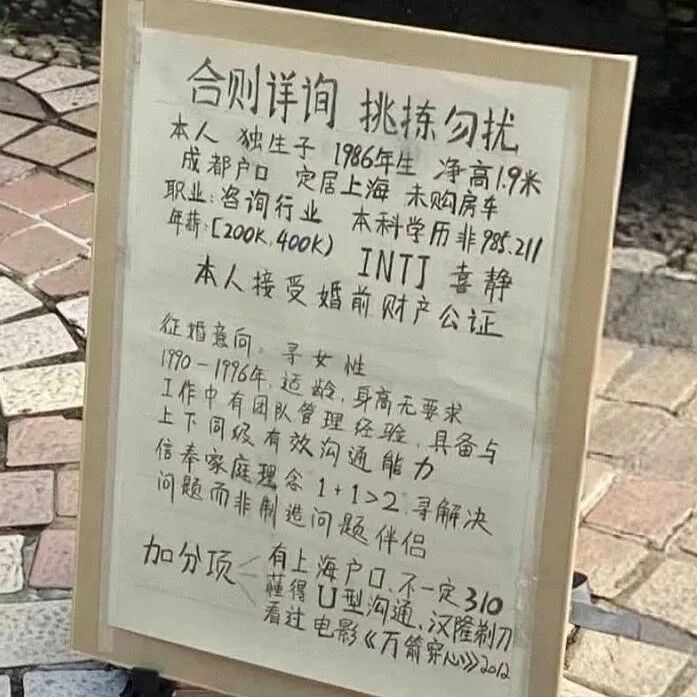 合则详询 挑拣勿扰
本人 独生子 1986年生 净高1.9米
成都户口 定居上海 未购房车
职业:咨询行业 本科学历非985.211
年薪:[200K,400K) INTJ 喜静
本人接受婚前财产公证
征婚意向:寻女性
1990-1996年,适龄,身高无要求
工作中有团队管理经验,具备与
上下同级有效沟通能力
信奉家庭理念1+1>2,寻解决
问题而非制造问题伴侣
加分项 有上海户口,不一定310
懂得U型沟通,汉隆剃刀
看过电影《万箭穿心》2012